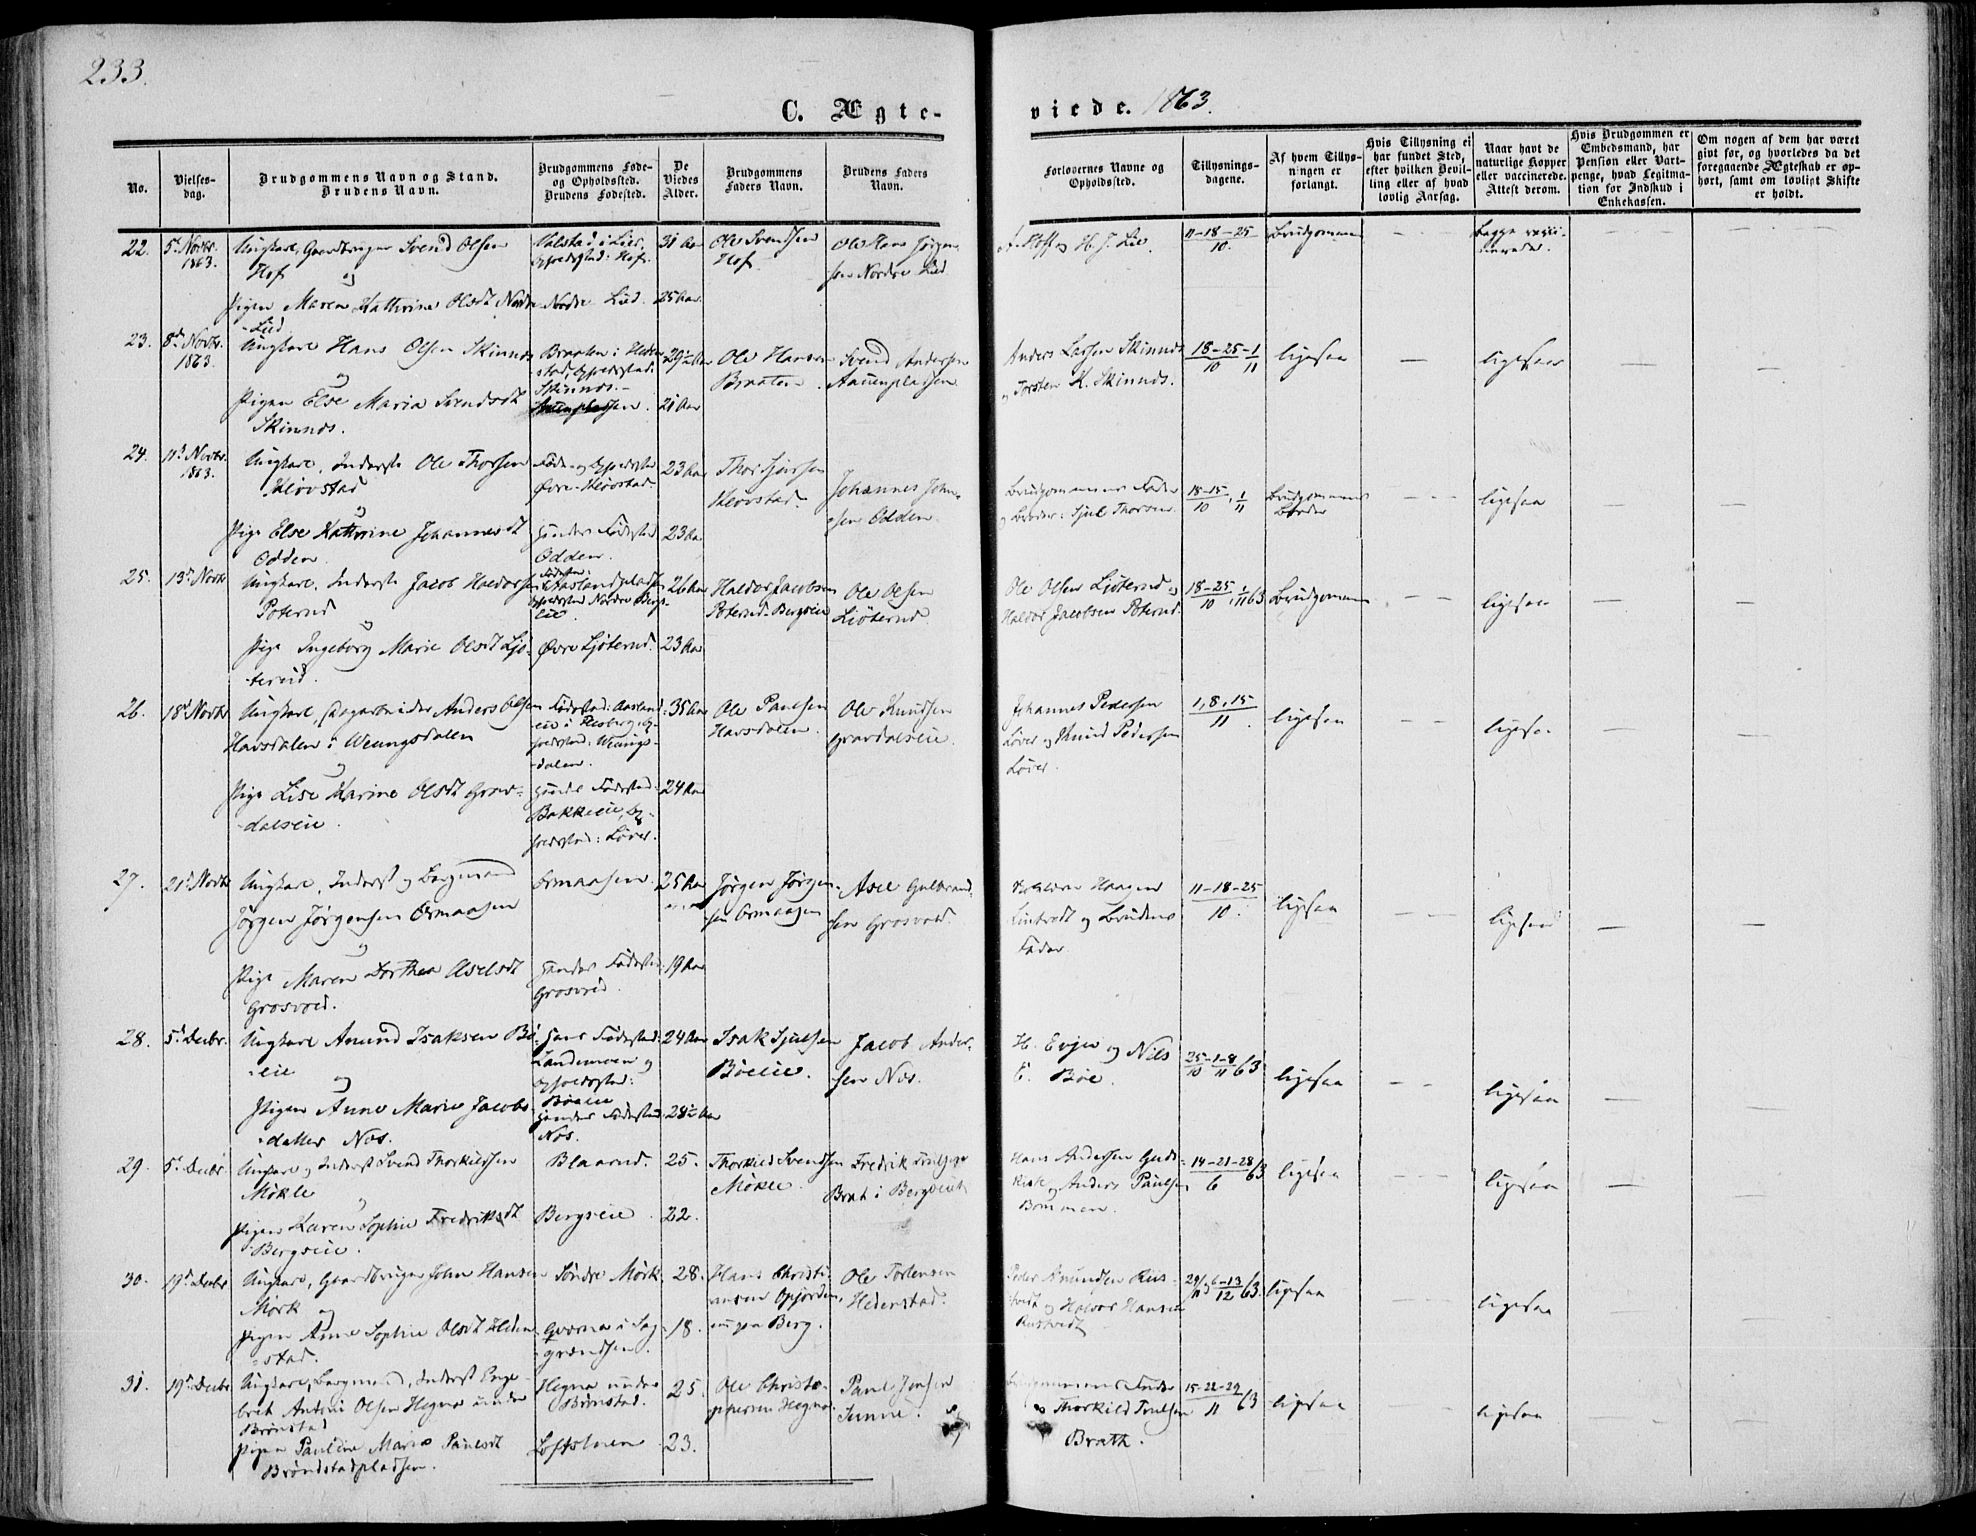 233.
C. Ægte-
viede. 1863.
No.
Vielses-
dag.
Brudgommens Navn og Stand.
Brudens Navn.
Brudgommens Føde-
og Opholdssted.
Brudens Fødested.
De
Viedes
Alder.
Brudgommens
Faders Navn.
Brudens Faders
Navn.
Forlovernes Navne og
Opholdssted.
Tillysnings-
dagene.
Af hvem Tillys-
ningen er
forlangt.
Hvis Tillysning ei
har fundet Sted,
efter hvilken Bevil-
ling eller af hvad
lovlig Aarsag.
Naar havt de
naturlige Kopper
eller vaccinerede.
Attest derom.
Hvis Brudgommen er
Embedsmand, har
Pension eller Vart-
penge, hvad Legitima-
tion for Indskud i
Enkekassen.
Om nogen af dem har været
gift før, og hvorledes da det
foregaaende Ægteskab er op-
hørt, samt om lovligt Skifte
er holdt.
22. 5t Novbr. 1863.
Ungkarl, Gaardbruger Svend Olsen
Hof
og
Pigen Maren Kathrine Olsdt Nordre
Lied
Valstad i Lier,
Opholdsstad: Hof.
Nordre Lied.
31 Aar
25 Aar
Ole Svendsen
Hof
Ole Hans Jørgen-
sen Nordre Lied
A. Hoff og H. J. Lie.
11-18-25
10.
Brudgommen
begge vacci-
nerede.
23. 8d Novbr. 1863.
Ungkarl Hans Olsen Skinnes
og
Pigen Else Maria Svendsdt
Skinnes.
Braaten i Heden-
stad, Opholdsstad:
Skinnes.
29½ Aar
21 Aar
Ole Hansen
Braaten.
Svend Andersen
Aasenpladsen
Anders Larsen Skinnes
og Torsten K. Skinnes.
18-25-1
10 11
ligesaa
ligesaa
24. 11d Novbr. 1863.
Ungkarl, Inderst Ole Thorsen
Kløvstad
og
Pige Else Kathrine Johannesdt
Odden
Føde- og Opholdsstad
Øvre Kløvstad.
Hendes Fødested
Odden.
23 Aar
23 Aar
Thor
Kløvstad.
Johannes John-
sen Odden.
Brudgommens Fader
og Broder: Kjul Thorsen
18-15, 1
10 11
Brudgommens
Broder
ligesaa
25. 13d Novbr
Ungkarl, Inderst Jacob Haldorsen
Poterud
og
Pige Ingeborg Marie Olsdt Ljø-
terud.
Nordre Bergs-
eie.
Øvre Ljøterud.
26 Aar
23 Aar
Haldor Jacobsen
Poterud-Bergseie
Ole Olsen
Liøterud
Ole Olsen Liøterud og
Haldor Jacobsen Poterud.
18-25, 1 63
10 11
Brudgommen
ligesaa
26. 18d Novbr
Ungkarl, Dagarbeider Anders Olsen
Havsdalen i Weungsdalen
og
Pige Lise Karine Olsdt Grav-
dalseie.
Fødestad: Aasland-
eie i Flesberg, Op-
holdsstad: Weungs-
dalen.
Hendes Fødestad:
Bakkeeie, Op-
holdsstad: Løver.
35 Aar
24 Aar
Ole Paulsen
Havsdalen.
Ole Knudsen
Gravdalseie.
Johannes Pedersen
Løver og Knud Pedersen
Løver.
1, 8, 15
11.
ligesaa
ligesaa
27. 21d Novbr
Ungkarl, Inderst og Bergmand
Jørgen Jørgensen Ormaasen
og
Pige Maren Dorthea Axelsdt
Grosvold.
Ormaasen.
Hendes Fødested:
Grosvold.
25 Aar
19 Aar
Jørgen Jørgen-
sen Ormaasen
Axel Gulbrand-
sen Grosvold.
Haagen
og Brudens
Fader
11-18-25
10.
ligesaa
ligesaa
28. 5d Decbr.
Ungkarl Anund Isaksen Bø-
eie
og
Pigen Anne Marie Jacobs-
datter Næs.
Hans Fødestad:
Landemoen og
Opholdsstad:
Bøeeie
Hendes Fødestad
Næs.
24 Aar
28½ Aar
Isak Kjulsen
Böeeie.
Jacob Ander-
sen Næs.
H. Evju og Nils
E. Bøe.
25-1-8 63
10 11
ligesaa
ligesaa
29. 5d Decbr.
Ungkarl og Inderst Svend Thorkildsen
Møkle
og
Pigen Karen Sophie Fredriksdt
Bergseie.
Blaarud.
Bergseie.
25.
22.
Thorkild Svendsen
Møkle.
Fredrik Trulsen
Brat i Bergseie
Hans Andersen
og Anders Paulsen
Bommen.
14-21-28 63
6
ligesaa
ligesaa
30. 19d Decbr
Ungkarl, Gaardbruger John Hansen
Mørk og
Pigen Anne Sophie Olsdt Heden-
stad.
Söndre Mørk.
Qværne i Sag-
grændsen.
28.
18.
Hans Christi-
ansen Opjorden,
nu paa Berg.
Ole Torstensen
Hedenstad.
Peder Anundsen Rus-
tvedt og Halvor Hansen
Rustvedt
29/11 6-13/12 63.
ligesaa
ligesaa
31. 19d Decbr
Ungkarl, Bergmand, Inderst Enge-
bret Antoni Olsen Hegna under
Brønstad
Pigen Pauline Marie Paulsdt
Brøndstadpladsen.
Hegna under
Brønstad.
Loftstuen
25.
23.
Ole Christo-
phersen Hegna.
Paul Jensen
Brudgommens Fader
og Thorkild Trulsen
Brath.
15-22-29 63
11
ligesaa
ligesaa